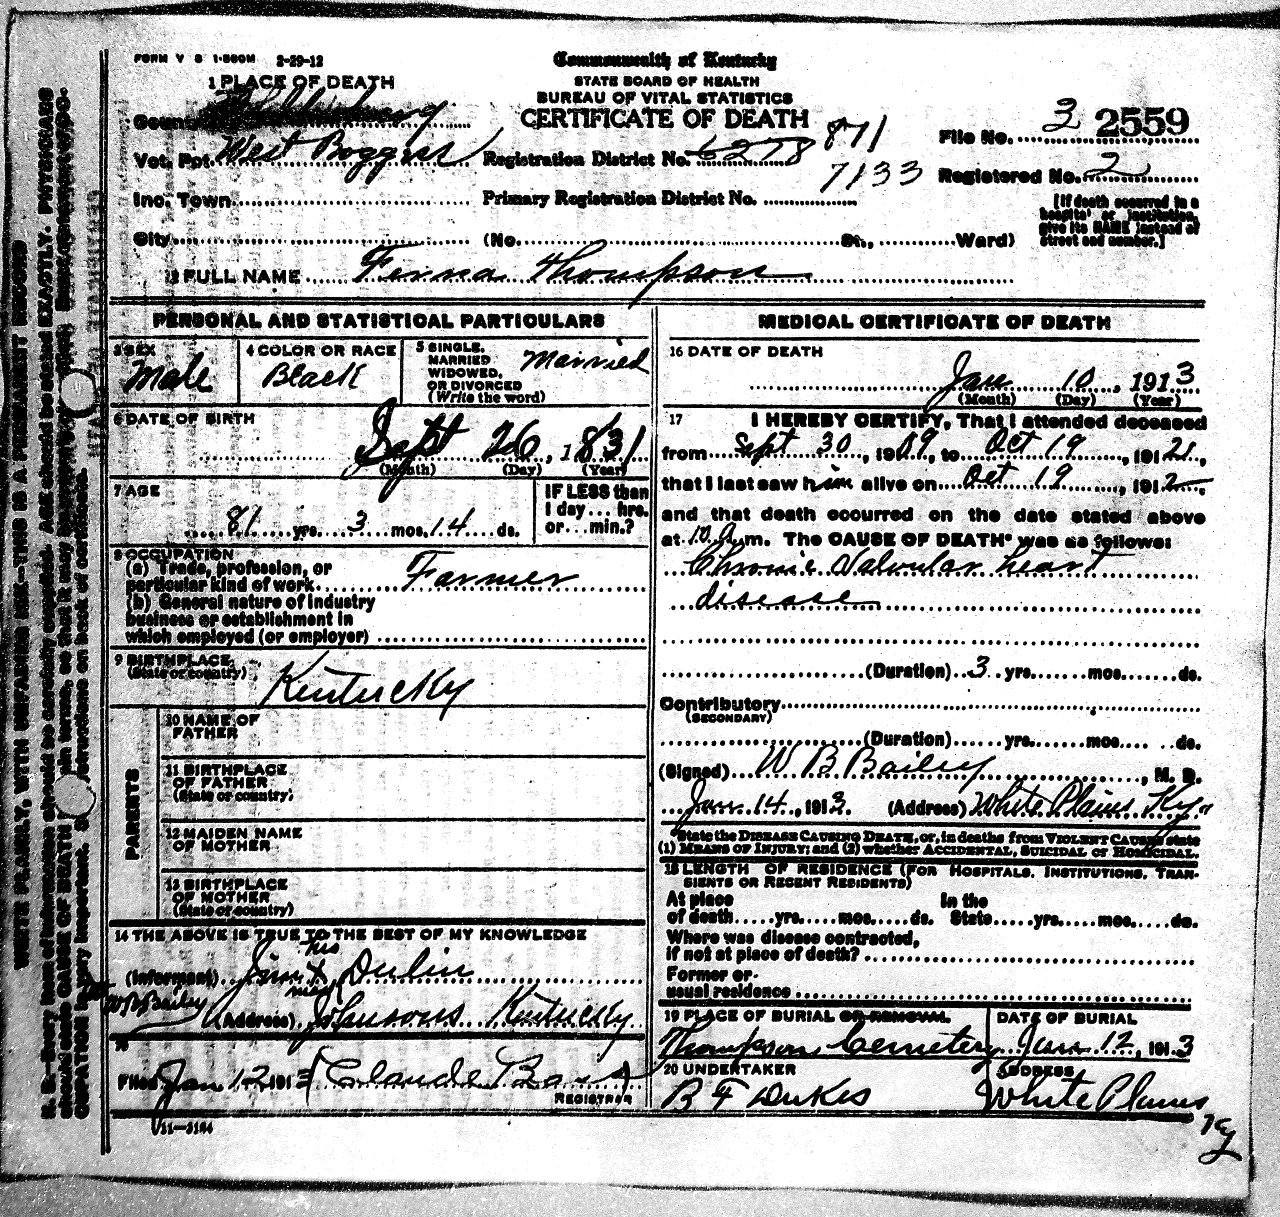 FORM V S 1-500M 2-29-12
Commonwealth of Kentucky
STATE BOARD OF HEALTH
BUREAU OF VITAL STATISTICS
CERTIFICATE OF DEATH
1 PLACE OF DEATH
County
Vot. Pct. West Boggess Registration District No. 6278 871
File No. 3 2559
7133
Registered No. 2
Inc. Town Primary Registration District No.
City (No. St., Ward)
[If death occurred in a hospital or institution, give its NAME instead of street and number.]
2 FULL NAME Ferna Thompson
PERSONAL AND STATISTICAL PARTICULARS
3 SEX Male
4 COLOR OR RACE Black
5 SINGLE, MARRIED WIDOWED, OR DIVORCED (Write the word) Married
6 DATE OF BIRTH
Sept 26, 1831
(Month) (Day) (Year)
7 AGE
81 yrs. 3 mos. 14 ds.
IF LESS than 1 day... hrs. or... min.?
8 OCCUPATION
(a) Trade, profession, or particular kind of work Farmer
(b) General nature of industry business or establishment in which employed (or employer)
9 BIRTHPLACE (State or country) Kentucky
PARENTS
10 NAME OF FATHER
11 BIRTHPLACE OF FATHER (State or country)
12 MAIDEN NAME OF MOTHER
13 BIRTHPLACE OF MOTHER (State or country)
14 THE ABOVE IS TRUE TO THE BEST OF MY KNOWLEDGE
his
(Informant) Jim X Dulin
mark
W B Bailey
(Address) Johnsons Kentucky
15
Filed Jan 12 1913 Claude
REGISTRAR
11-3184
MEDICAL CERTIFICATE OF DEATH
16 DATE OF DEATH
Jan 10, 1913
(Month) (Day) (Year)
17 I HEREBY CERTIFY, That I attended deceased
from Sept 30, 1909, to Oct 19, 1912,
that I last saw him alive on Oct 19, 1912,
and that death occurred on the date stated above
at 10 A m. The CAUSE OF DEATH* was as follows:
Chronic Valvular heart
disease
(Duration) 3 yrs. mos. ds.
Contributory
(SECONDARY)
(Duration) yrs. mos. ds.
(Signed) W B Bailey, M. D.
Jan 14, 1913. (Address) White Plains Ky.
*State the DISEASE CAUSING DEATH, or, in deaths from VIOLENT CAUSES state
(1) MEANS OF INJURY; and (2) whether ACCIDENTAL, SUICIDAL or HOMICIDAL.
18 LENGTH OF RESIDENCE (FOR HOSPITALS, INSTITUTIONS, TRAN-
SIENTS OR RECENT RESIDENTS)
At place of death yrs. mos. ds. In the State yrs. mos. ds.
Where was disease contracted,
if not at place of death?
Former or
usual residence
19 PLACE OF BURIAL OR REMOVAL DATE OF BURIAL
Thompson Cemetery Jan 12, 1913
20 UNDERTAKER ADDRESS
B F Dukes White Plains
Ky